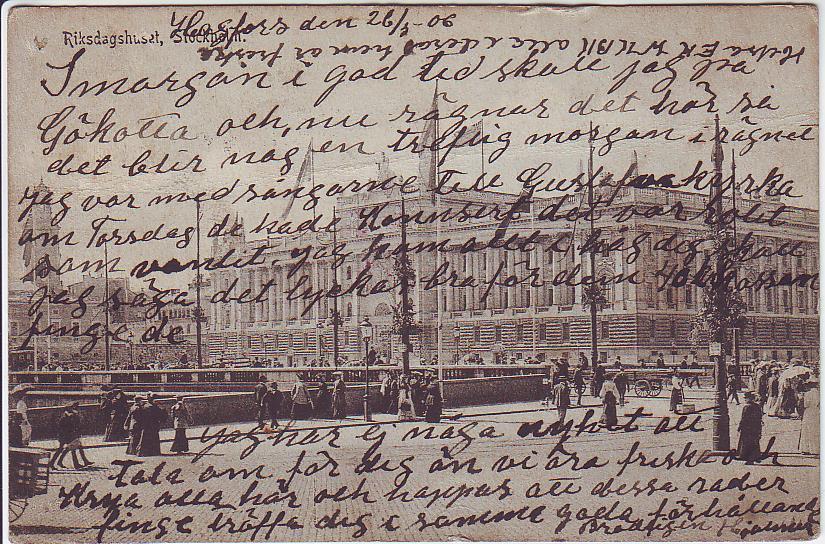 Riksdagshuset, Stockholm.
Hagfors den 26/5-06
Helsa
alla der hemma är friska
I morgan i god tid skall jag på
Gökotta och, nu rägnar det här så
det blir nog en treflig morgan i rägnet
jag var med sångarne till Gustafva kyrka
om Torsdag de hade Konnsert det var rolit
som vanlit jag kom allt i håg dig skall
jag säga det lyckas bra för dem 40 k gossarna
finge de
jag har ej någa nyhet att
tala om för dig än vi ära friska och
krya alla här och hoppas att dessa rader
finge träffa dig i samme goda förhålland
Brodren Hjalmar